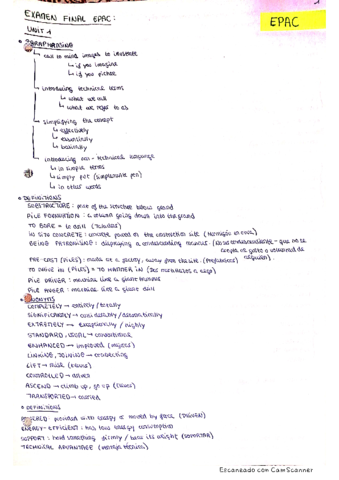 EXAMEN FINAL EPAC:
EPAC
UNIT 1
PARAPHRASING
call to mind images to illustrate
↳ if you imagine
↳ if you picture
introducing technical terms
↳ what we call
↳ what we refer to as
simplifying the concept
↳ effectively
↳ essentially
↳ basically
introducing non-technical language
↳ in simple terms
↳ simply put (simplemente pon)
↳ in other words
DEFINITIONS
SUBSTRUCTURE: part of the structure below ground
PILE FOUNDATION: a column going down into the ground
TO BORE = to drill
IN SITU CONCRETE: concrete poured on the construction site (hormigón
BEING PATRONISING: displaying a condescending manner
PRE-CAST (PILES): made at a factory, away from the site. (Prefabricados)
TO DRIVE IN (PILES) = TO HAMMER IN
PILE DRIVER: machine like a giant hammer
PILE BORER: machine like a giant drill
SYNONYMS
COMPLETELY → entirely/totally
SIGNIFICANTLY → considerably/substantially
EXTREMELY → exceptionally/highly
STANDARD, USUAL → conventional
ENHANCED → improved (mejores)
LINKING, JOINING → connecting
LIFT → raise
CONTROLLED →
ASCEND → climb up, go up
TRANSPORTED → carried
DEFINITIONS
POWERED: provided with energy & moved by force
ENERGY-EFFICIENT: has low energy consumption
SUPPORT: hold something firmly / bear its weight (soportar)
TECHNICAL ADVANTAGE (ventaja técnica)
Escaneado con CamScanner